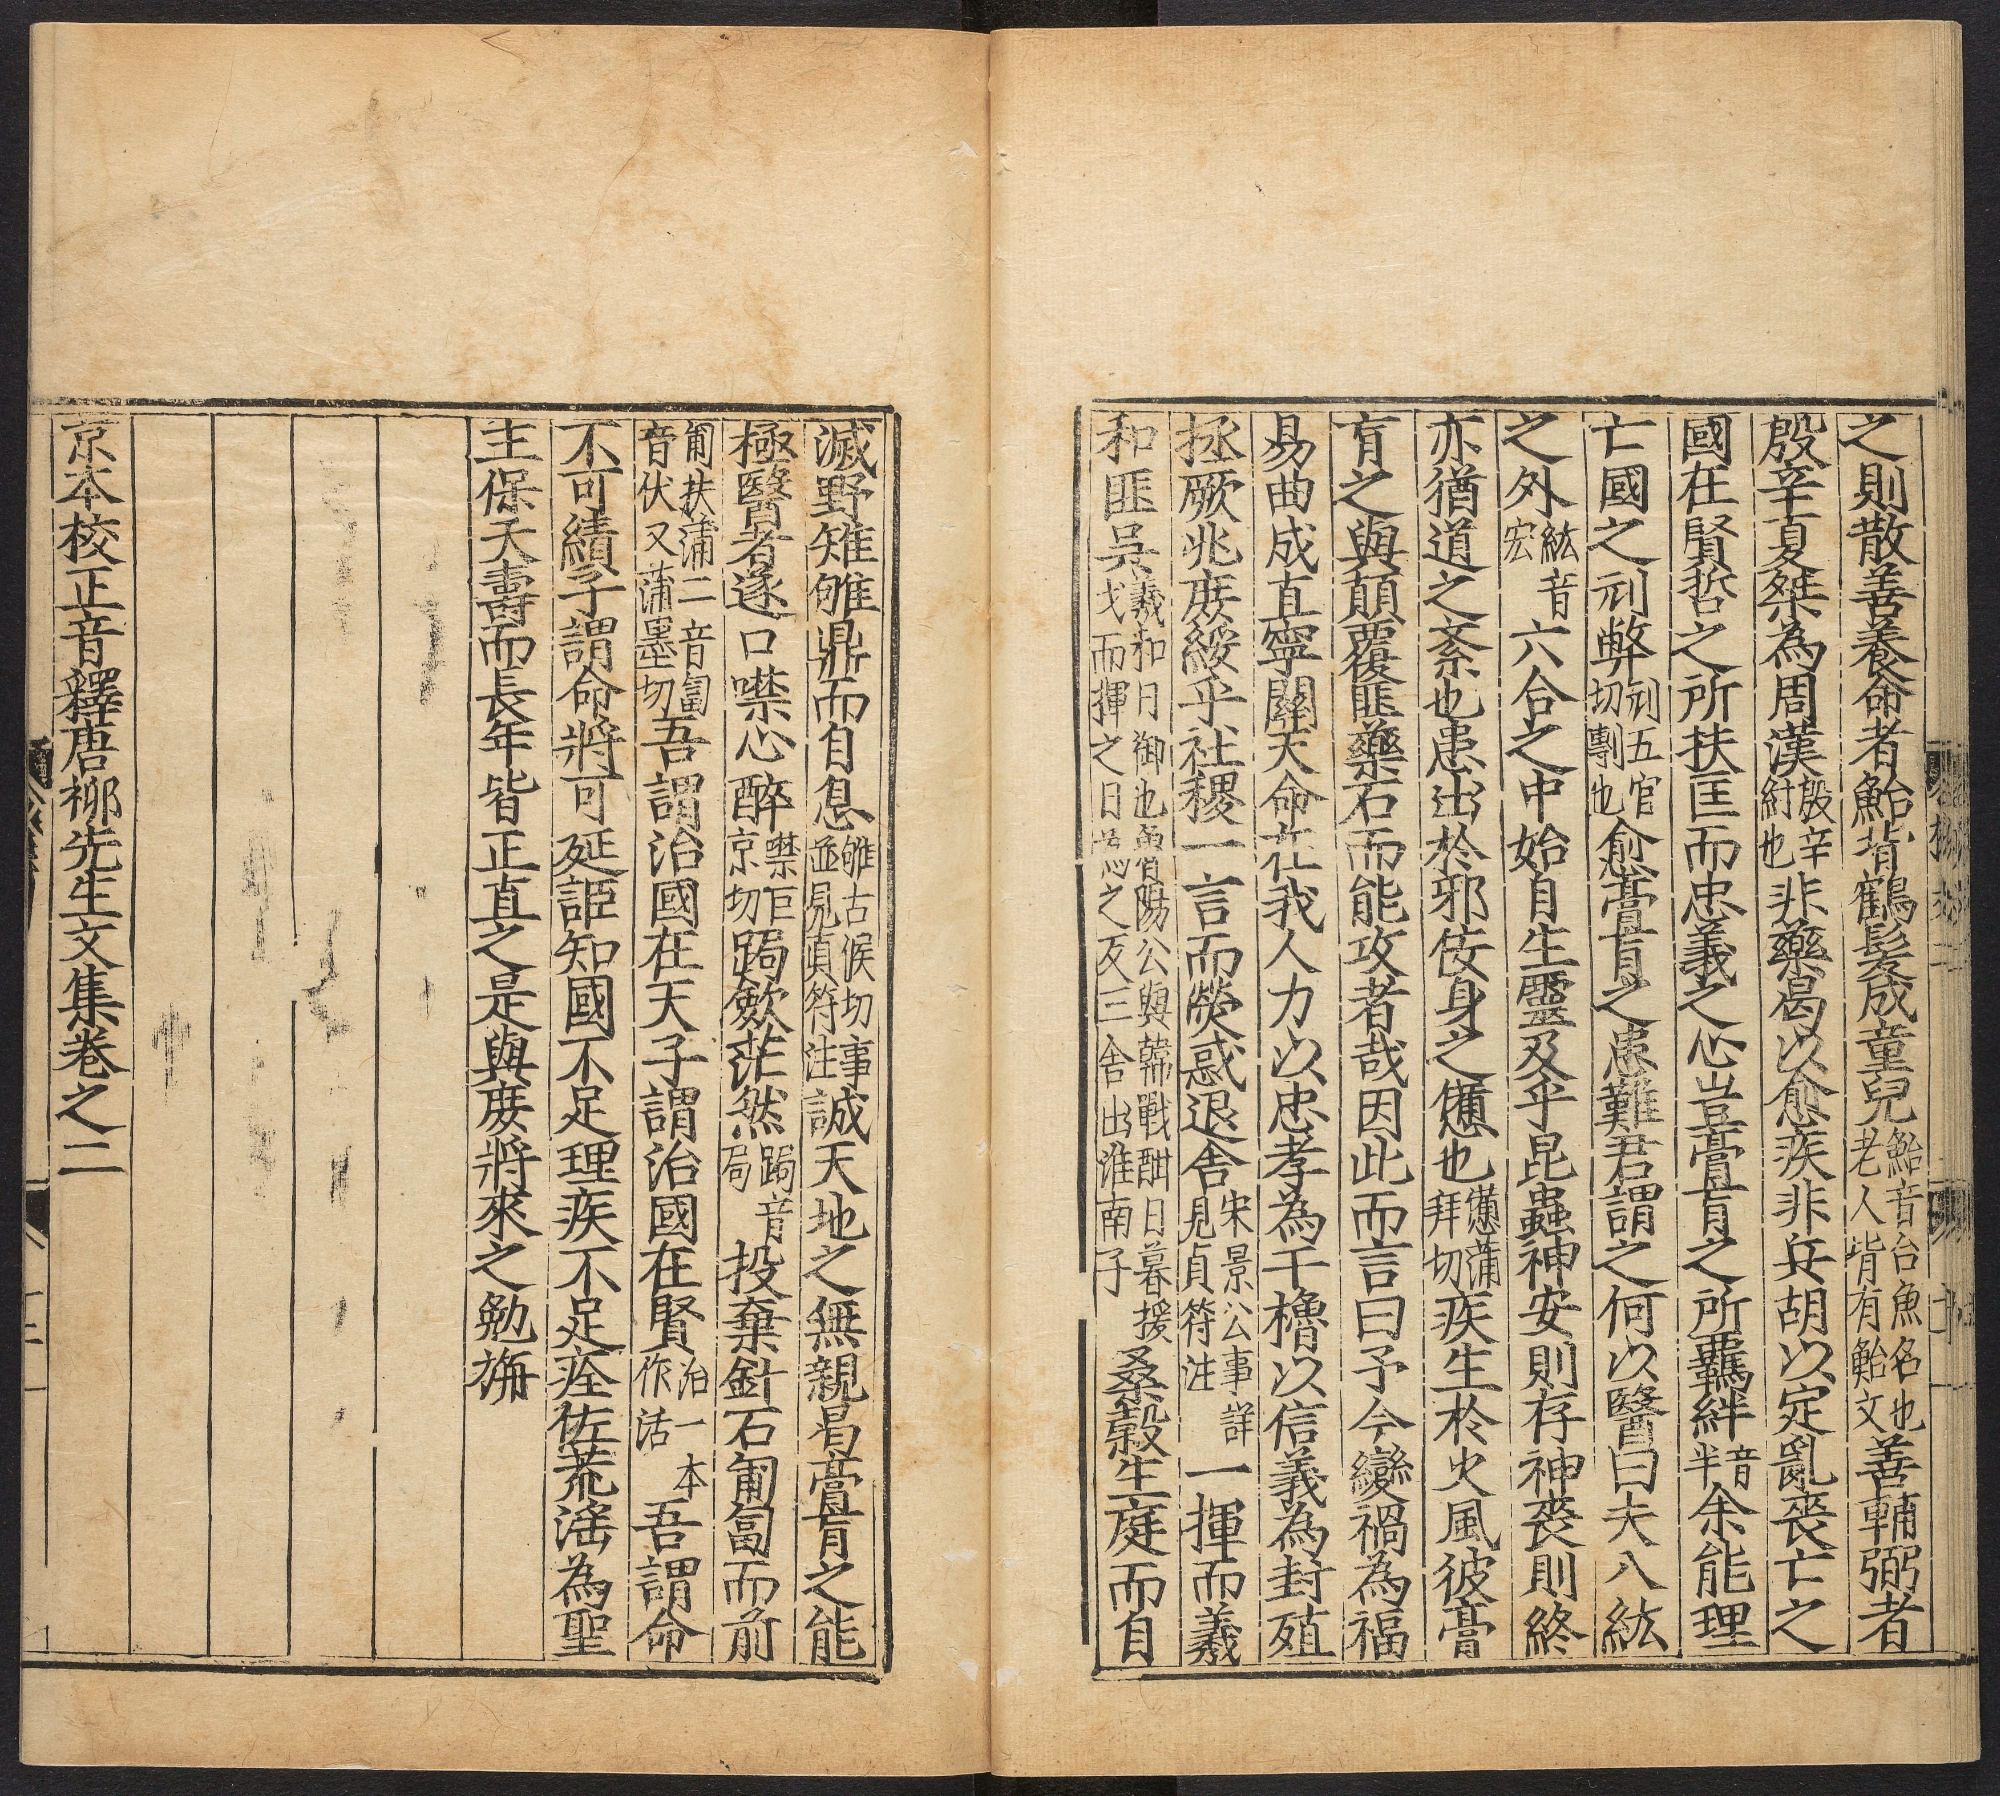 之則散善養命者鮐背鶴髮成童兒鮐音台魚名也老人背有鮐文善輔弼者
殷辛夏桀為周漢殷辛紂也非藥曷以愈疾非兵胡以定亂喪亡之
國在賢哲之所扶匡而忠義之心豈膏肓之所羈絆音半余能理
亡國之刓弊刓五官切剸也愈膏肓之患難君謂之何以醫曰夫八紘
之外紘音宏六合之中始自生靈及乎昆蟲神安則存神喪則終
亦猶道之紊也患出於邪佞身之憊也憊蒲拜切疾生於火風彼膏
肓之與顛覆匪藥石而能攻者哉因此而言曰予今變禍為福
易曲成直寧關天命在我人力以忠孝為干櫓以信義為封殖
拯厥兆庶綏乎社稷一言而熒惑退舍宋景公事詳見貞符注一揮而羲
和匪吳羲和日御也魯陽公與韓戰酣日暮援戈而揮之日為之反三舍出淮南子桑穀生庭而自
滅野雉雊鼎而自息雊古候切事並見貞符注誠天地之無親曷膏肓之能
極醫者遂口噤心醉噤巨京切跼斂茫然跼音局投棄針石匍匐而前
匍扶蒲二音匐音伏又蒲墨切吾謂治國在天子謂治國在賢治一本作活吾謂命
不可績子謂命將可延詎知國不足理疾不足痊佐荒滛為聖
主保夭壽而長年皆正直之是與庶將來之勉旃
京本校正音釋唐柳先生文集卷之二